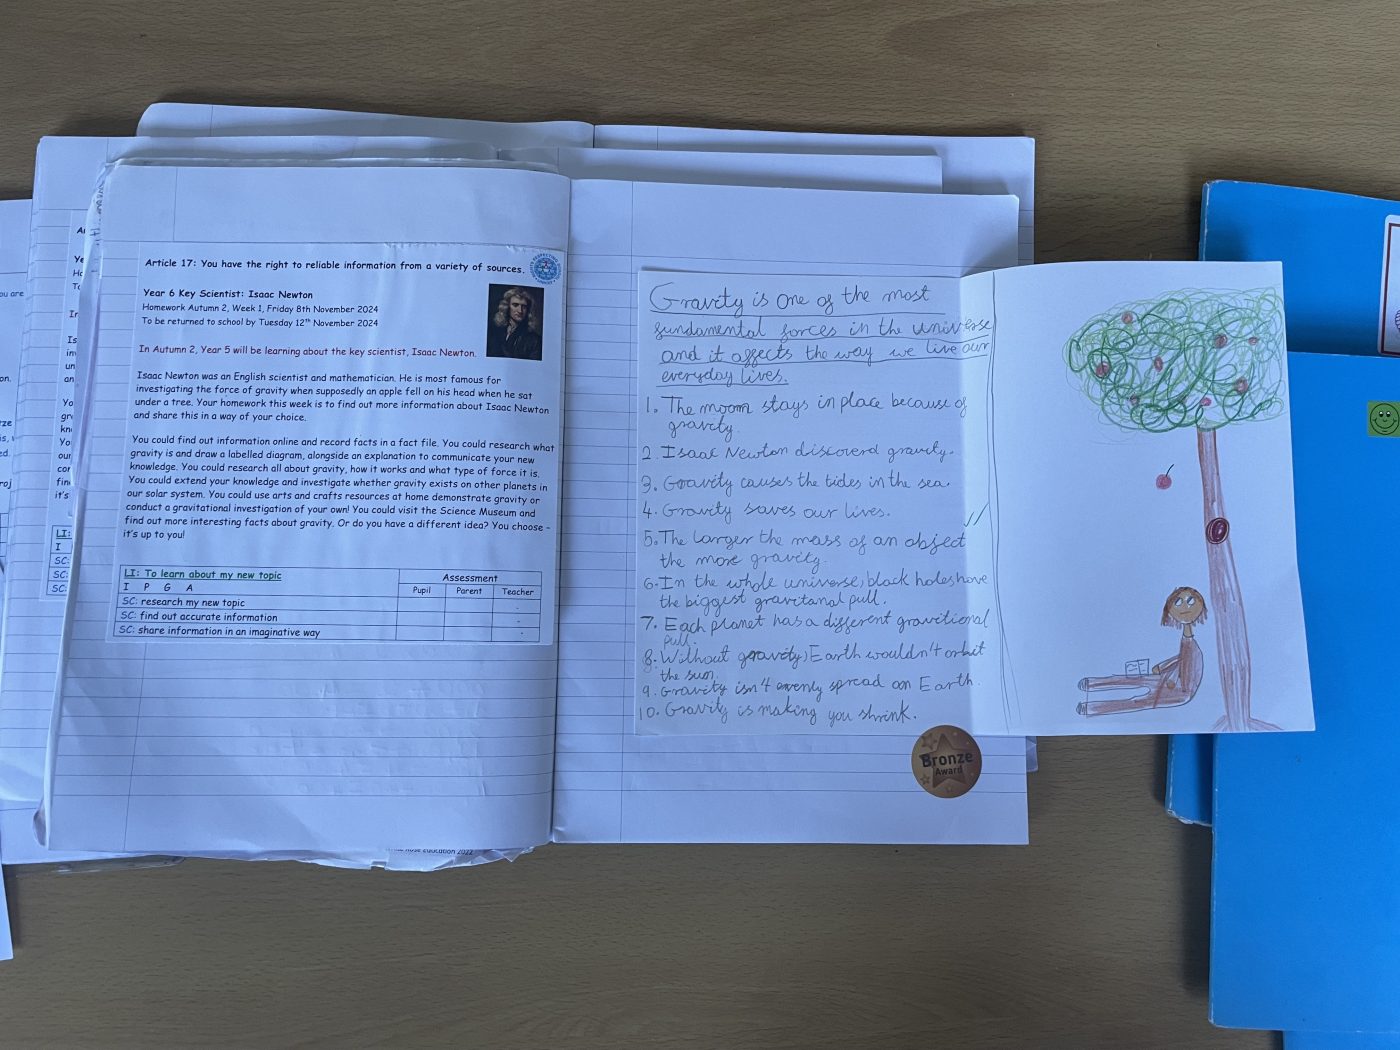 Article 17: You have the right to reliable information from a variety of sources.
Year 6 Key Scientist: Isaac Newton
Homework Autumn 2, Week 1, Friday 8th November 2024
To be returned to school by Tuesday 12th November 2024
In Autumn 2, Year 5 will be learning about the key scientist, Isaac Newton.
Isaac Newton was an English scientist and mathematician. He is most famous for
investigating the force of gravity when supposedly an apple fell on his head when he sat
under a tree. Your homework this week is to find out more information about Isaac Newton
and share this in a way of your choice.
You could find out information online and record facts in a fact file. You could research what
gravity is and draw a labelled diagram, alongside an explanation to communicate your new
knowledge. You could research all about gravity, how it works and what type of force it is.
You could extend your knowledge and investigate whether gravity exists on other planets in
our solar system. You could use arts and crafts resources at home demonstrate gravity or
conduct a gravitational investigation of your own! You could visit the Science Museum and
find out more interesting facts about gravity. Or do you have a different idea? You choose –
it's up to you!
LI: To learn about my new topic
I P G A
Assessment
Pupil Parent Teacher
SC: research my new topic
SC: find out accurate information
SC: share information in an imaginative way
Education 2022
Gravity is one of the most
fundamental forces in the universe
and it affects the way we live our
everyday lives.
1. The moom stays in place because of
gravity.
2. Isaac Newton discoverd gravity.
3. Gravity causes the tides in the sea.
4. Gravity saves our lives.
5. The larger the mass of an object
the more gravity.
6. In the whole universe, black holes have
the biggest gravitanal pull.
7. Each planet has a different gravitional
pull.
8. Without gravity, Earth wouldn't orbit
the sun.
9. Gravity isn't evenly spread on Earth.
10. Gravity is making you shrink.
Bronze
Award
LI:
I
SC:
SC:
SC: